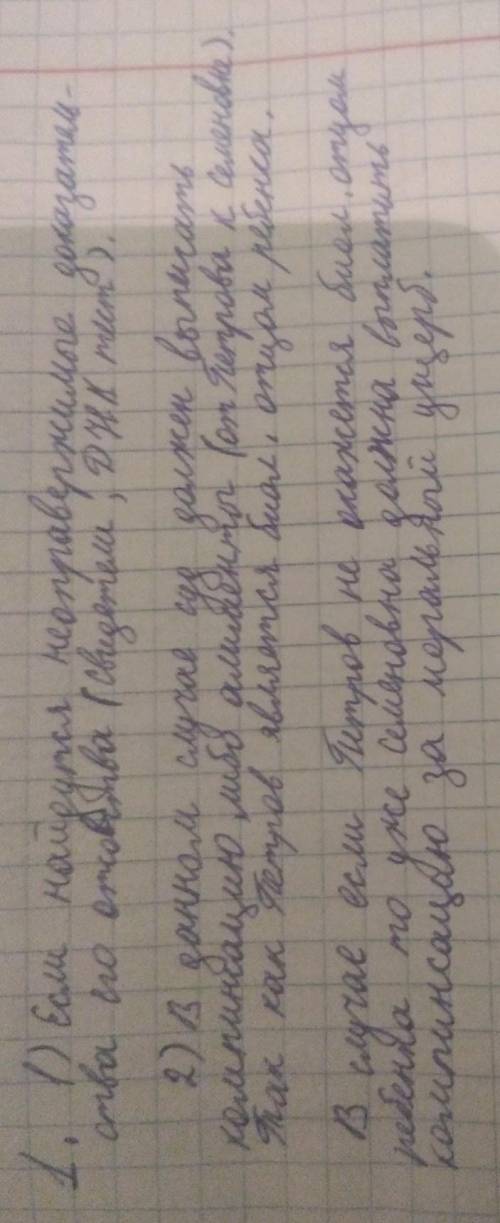 1. 1) Если найдутся неоправержимые доказатель-
ства его отцовства (свидетели, ДНК тест).
2) В данном случае суд должен выписать
компинсацию либо алименты (от Петрова к Семеновне).
Так как Петров является биол. отцом ребенка.
В случае если Петров не окажется биол. отцом
ребенка то уже Семеновна должна выплатить
компинсацию за моральный ущерб.